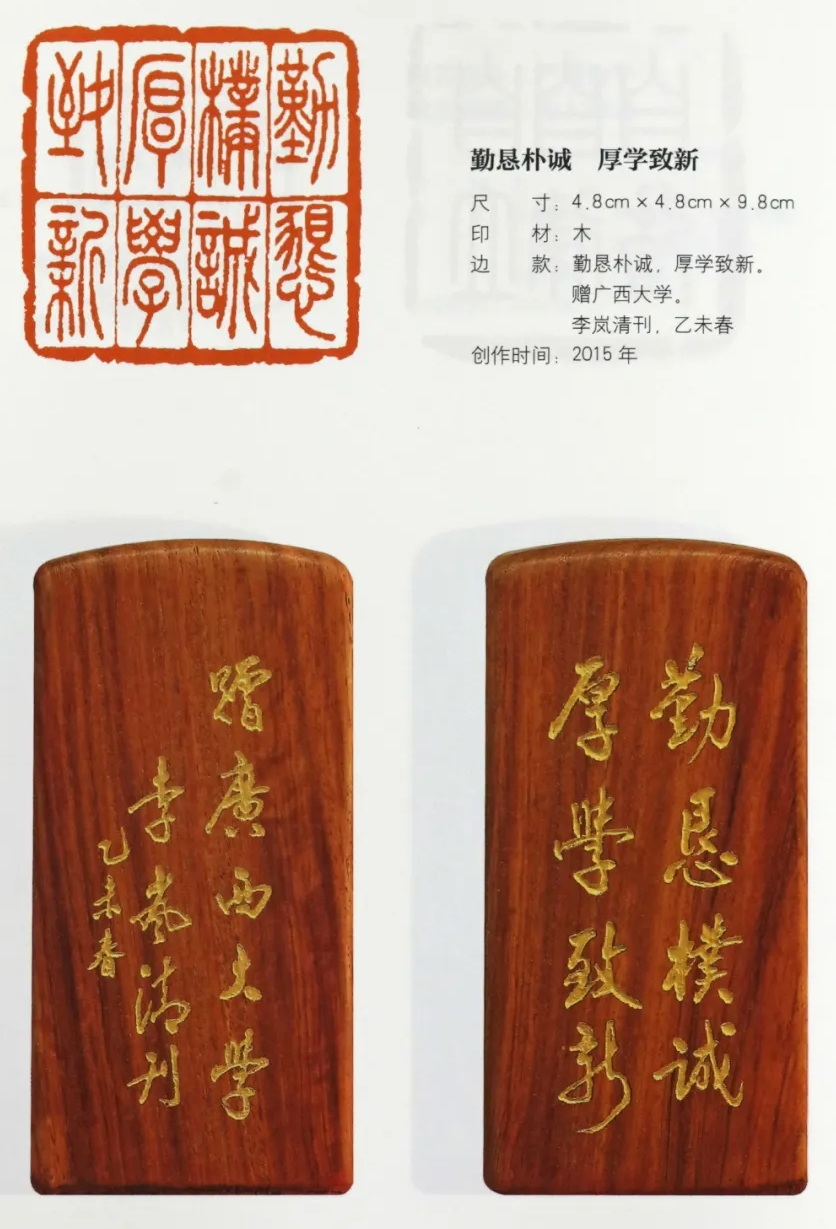 勤樸厚致
懇誠學新
勤恳朴诚 厚学致新
尺 寸：4.8cm×4.8cm×9.8cm
印 材：木
边 款：勤恳朴诚，厚学致新。
赠广西大学。
李岚清刊，乙未春
创作时间：2015 年
贈廣西大学
李岚清刊
乙未春
勤恳樸诚
厚学致新